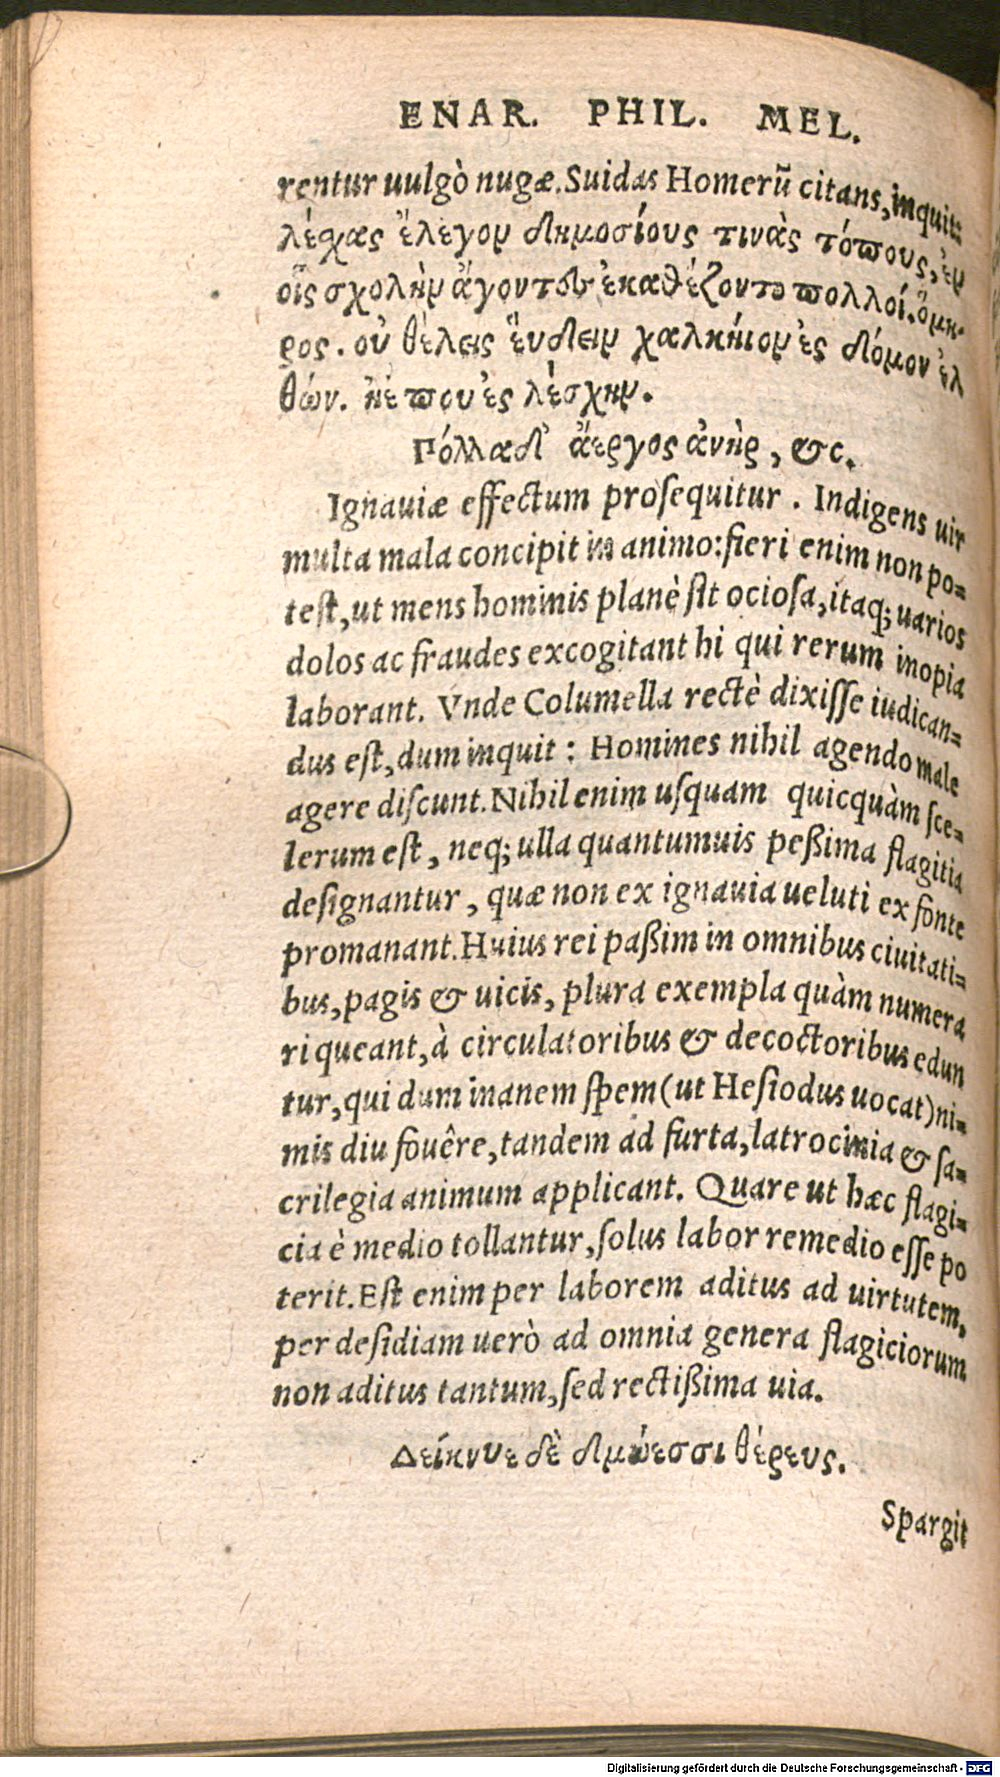 ENAR. PHIL. MEL.
rentur uulgò nugæ. Suidas Homerũ citans, inquit:
λέσχας ἔλεγον δημοσίους τινὰς τόπους, ἐν
οἷς σχολὴν ἄγοντες ἐκαθέζοντο πολλοί. ὅμη-
ρος. οὐ θέλεις ἕυδειν χαλκήιον ἐς δόμον ἐλ
θών. ἠέ που ἐς λέσχην.
Πόλλα δ' ἄεργος ἀνὴρ, &c.
Ignauiæ effectum proſequitur. Indigens uir
multa mala concipit in animo: fieri enim non po-
teſt, ut mens hominis planè ſit ocioſa, itaq; uarios
dolos ac fraudes excogitant hi qui rerum inopia
laborant. Vnde Columella rectè dixiſſe iudican-
dus eſt, dum inquit: Homines nihil agendo male
agere diſcunt. Nihil enim uſquam quicquàm ſce-
lerum eſt, neq; ulla quantumuis peßima flagitia
deſignantur, quæ non ex ignauia ueluti ex fonte
promanant. Huius rei paßim in omnibus ciuitati-
bus, pagis & uicis, plura exempla quàm numera
ri queant, à circulatoribus & decoctoribus edun
tur, qui dum inanem ſpem (ut Heſiodus uocat) ni-
mis diu fouêre, tandem ad furta, latrocinia & ſa-
crilegia animum applicant. Quare ut hæc flagi-
cia è medio tollantur, ſolus labor remedio eſſe po
terit. Eſt enim per laborem aditus ad uirtutem,
per deſidiam uerò ad omnia genera flagiciorum
non aditus tantum, ſed rectißima uia.
Δείκνυε δὲ δμώεσσι θέρευς.
Spargit
Digitalisierung gefördert durch die Deutsche Forschungsgemeinschaft - DFG